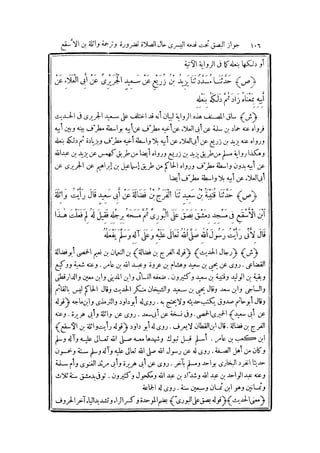 ١٠٦ جواز البصق تحت قدمه اليسرى حال الصلاة لضرورة وترجمة واثلة بن الأسقع
أو دلكها بنعله كما فى الرواية الآتية
﴿ص﴾ حَدَّثَنَا مُسَدَّدٌ نَا يَزِيدُ بْنُ زُرَيْعٍ عَنْ سَعِيدٍ الْجُرَيْرِىِّ عَنْ أَبِى الْعَلَاءِ عَنْ
أَبِيهِ بِمَعْنَاهُ زَادَ ثُمَّ دَلَكَهُ بِنَعْلِهِ
﴿ش﴾ ساق المصنف هذه الرواية لبيان أنه قد اختلف على سعيد الجريرى فى الحديث
فرواه عنه حماد بن سلمة عن أبى العلاء عن أخيه مطرف عن أبيه بواسطة مطرف بينه وبين أبيه
ورواه عنه يزيد بن زريع عن أبى العلاء عن أبيه بلا واسطة أخيه مطرف وبزيادة ثم دلكه بنعله
وهكذا رواية مسلم من طريق يزيد بن زريع ورواه أيضا من طريق كهمس عن يزيد بن عبد الله
عن أبيه بدون واسطة مطرف ورواه الحاكم من طريق إسماعيل بن إبراهيم عن الجريرى عن
أبى العلاء عن أبيه بلا واسطة مطرف أيضا
﴿ص﴾ حَدَّثَنَا قُتَيْبَةُ بْنُ سَعِيدٍ ثَنَا الْفَرَجُ بْنُ فَضَالَةَ عَنْ أَبِى سَعِيدٍ قَالَ رَأَيْتُ وَاثِلَةَ
ابْنَ الْأَسْقَعِ فِى مَسْجِدِ دِمَشْقَ بَصَقَ عَلَى الْبُورِىِّ ثُمَّ مَسَحَهُ بِرِجْلِهِ فَقِيلَ لَهُ لِمَ فَعَلْتَ هٰذَا
قَالَ لِأَنِّى رَأَيْتُ رَسُولَ اللهِ صَلَّى اللهُ تَعَالَى عَلَيْهِ وَعَلَى آلِهِ وَسَلَّمَ يَفْعَلُهُ
﴿ش﴾ ﴿رجال الحديث﴾ ﴿قوله الفرج بن فضالة﴾ بن النعمان بن نعيم الحمصى أبو فضالة
القضاعى. روى عن يحيى بن سعيد وهشام بن عروة وعبد الله بن عامر. وعنه شعبة ووكيع
وبقية بن الوليد وقتيبة بن سعيد وكثيرون. ضعفه النسائى وابن المدينى وابن معين والدارقطنى
والساجى وابن سعد وقال يحيى بن سعيد والشيخان منكر الحديث وقال الحاكم ليس بالقائم
وقال أبو حاتم صدوق يكتب حديثه ولا يحتج به. روى له أبو داود والترمذى وابن ماجه ﴿قوله
عن أبى سعيد﴾ الحميرى الحمصى. وفى نسخة عن أبى سعد. روى عن واثلة وأبى هريرة. وعنه
الفرج بن فضالة. قال ابن القطان لا يعرف. روى له أبو داود ﴿قوله رأيت واثلة بن الأسقع﴾
ابن كعب بن عامر. أسلم قبل تبوك وشهدها معه صلى الله تعالى عليه وآله وسلم
وكان من أهل الصفة. روى له عن رسول الله صلى الله تعالى عليه وآله وسلم ستة وخمسون
حديثا انفرد البخارى بواحد ومسلم بآخر. روى عن أبى هريرة وأبى مرثد الغنوى وأم سلمة
وعنه عبد الواحد بن عبد الله وشداد بن عبد الله ومكحول وكثيرون. توفى بدمشق سنة ثلاث
وثمانين وهو ابن ثمان وسبعين سنة. روى له الجماعة
﴿معنى الحديث﴾ ﴿قوله بصق على البورى﴾ بضم الموحدة وكسر الراء وتشديد الياء آخر الحروف